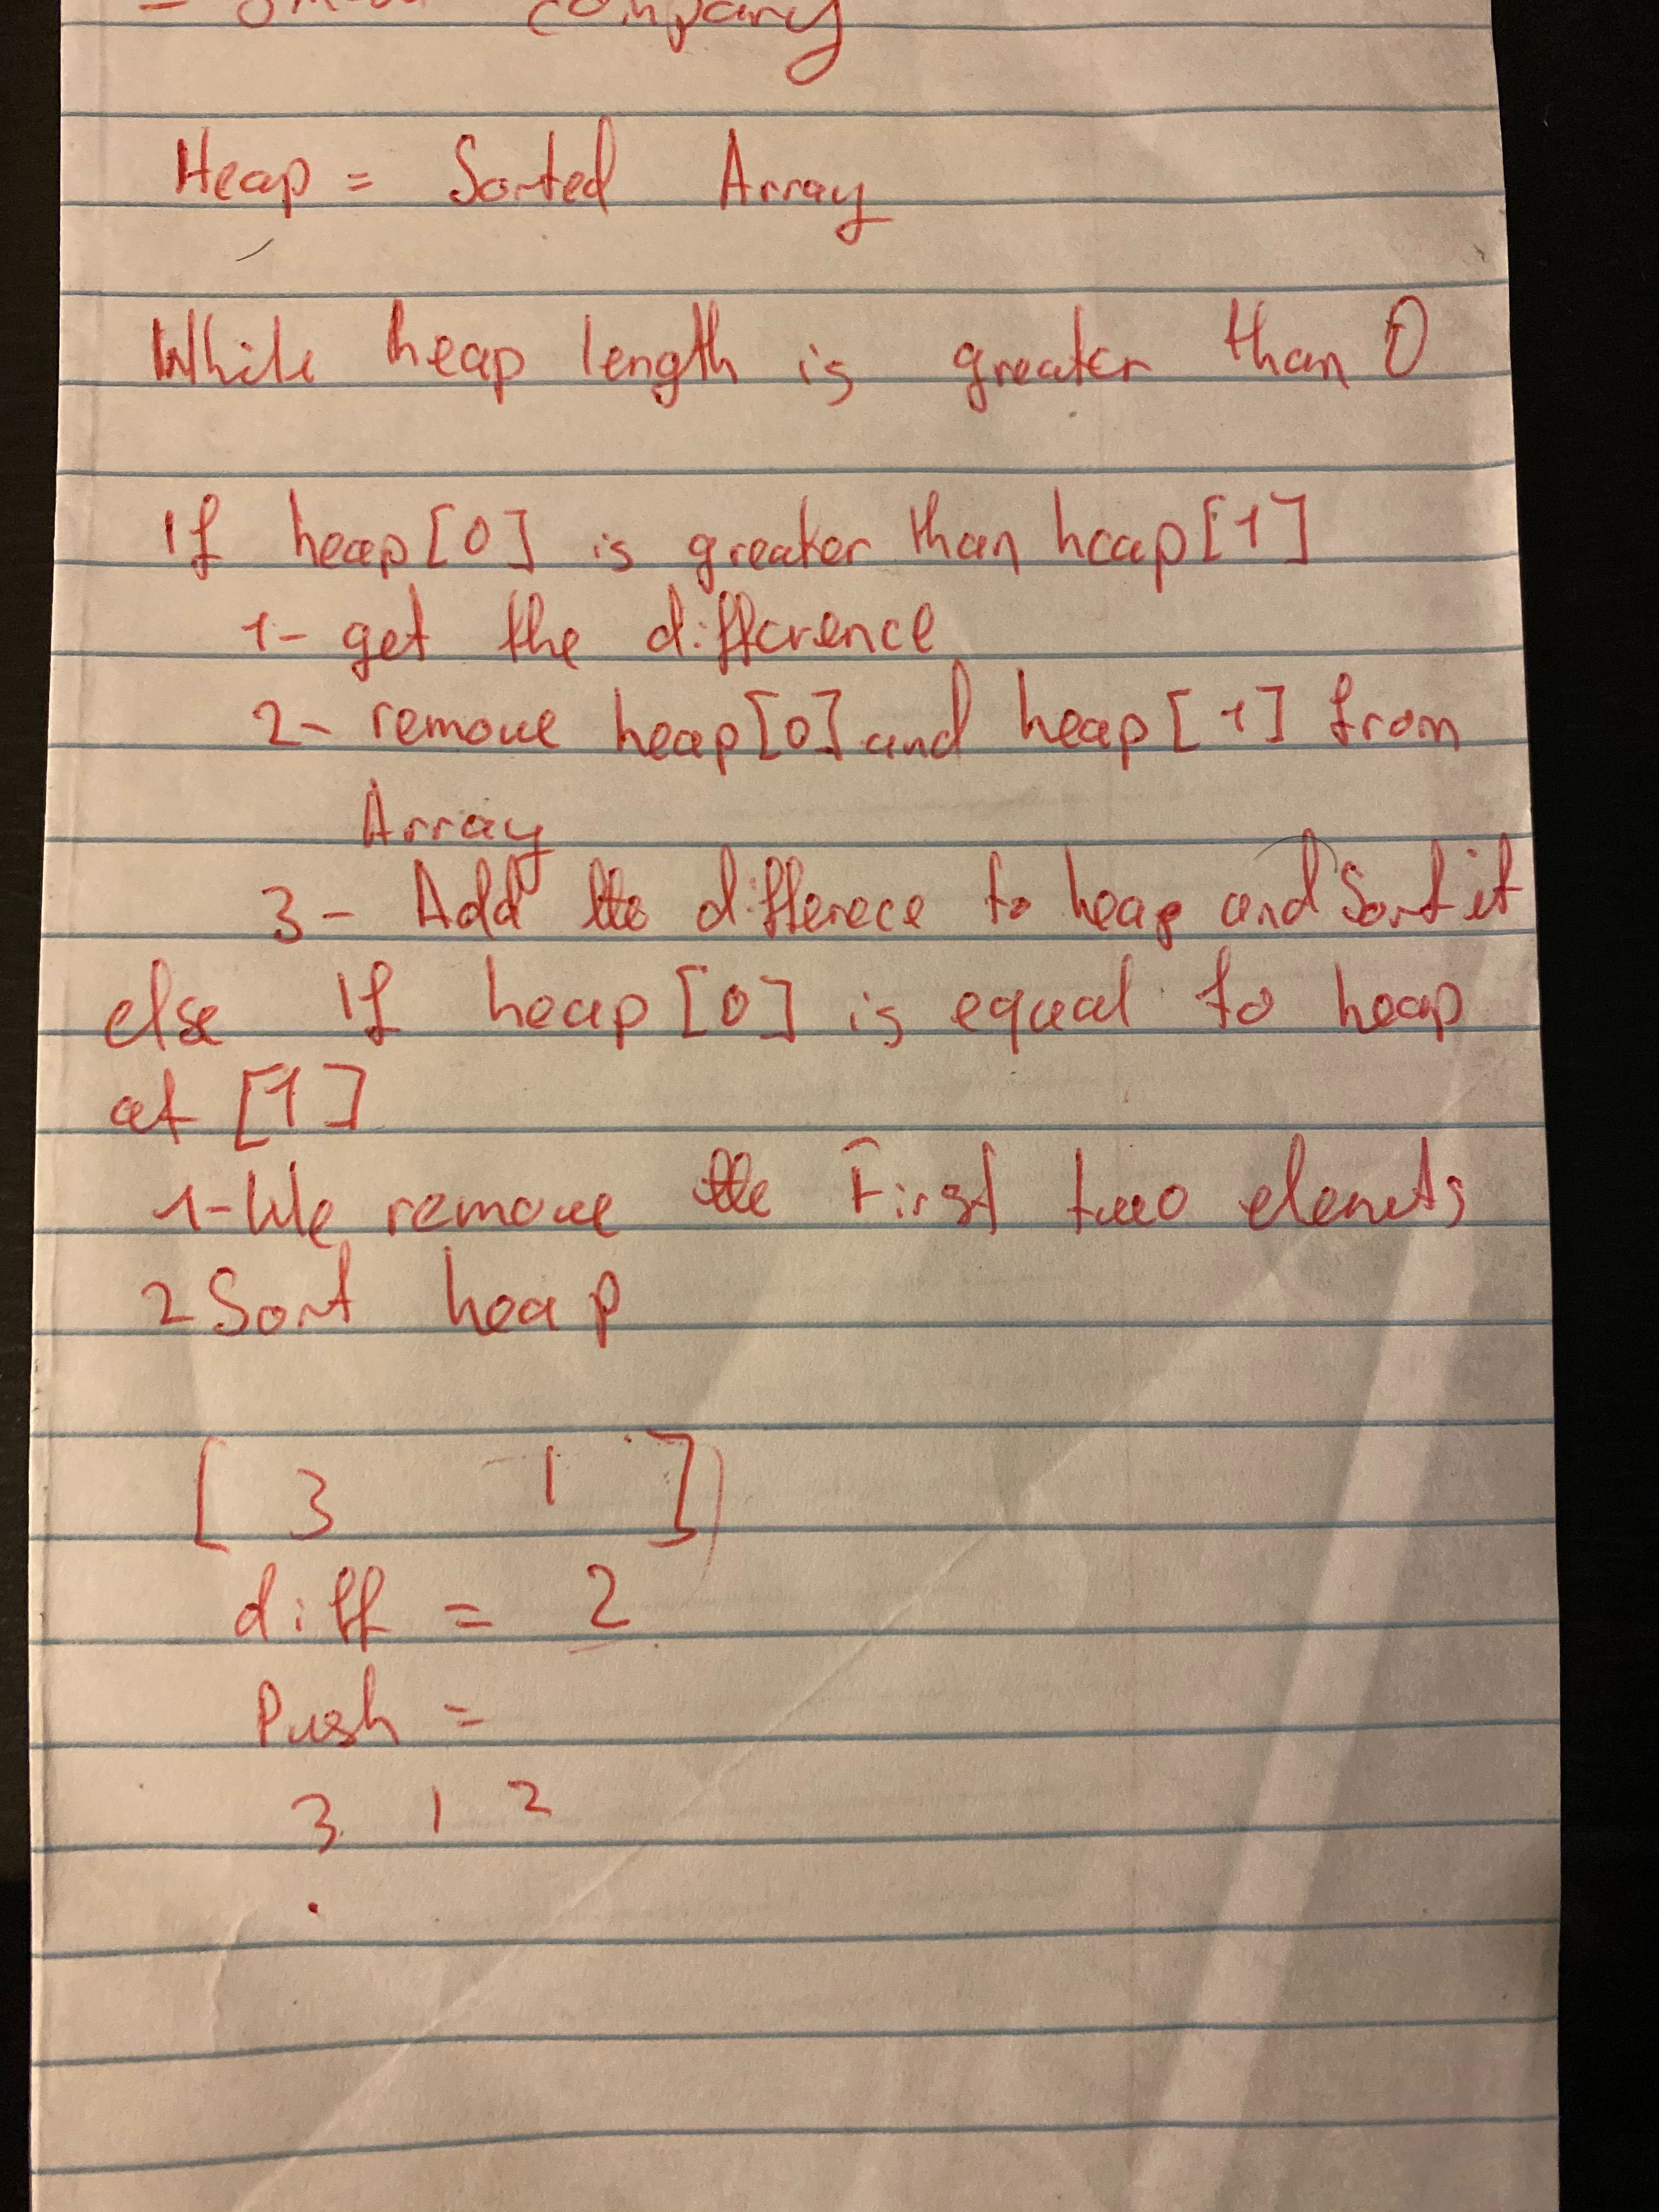 company
Heap = Sorted Array
While heap length is greater than 0
If heap[0] is greater than heap[1]
1- get the difference
2- remove heap[0] and heap[1] from
Array
3- Add the differece to heap and Sort it
else If heap[0] is equal to heap
at [1]
1- We remove the First two elemets
2 Sort heap
[ 3 1 ]
diff = 2
Push =
3 1 2